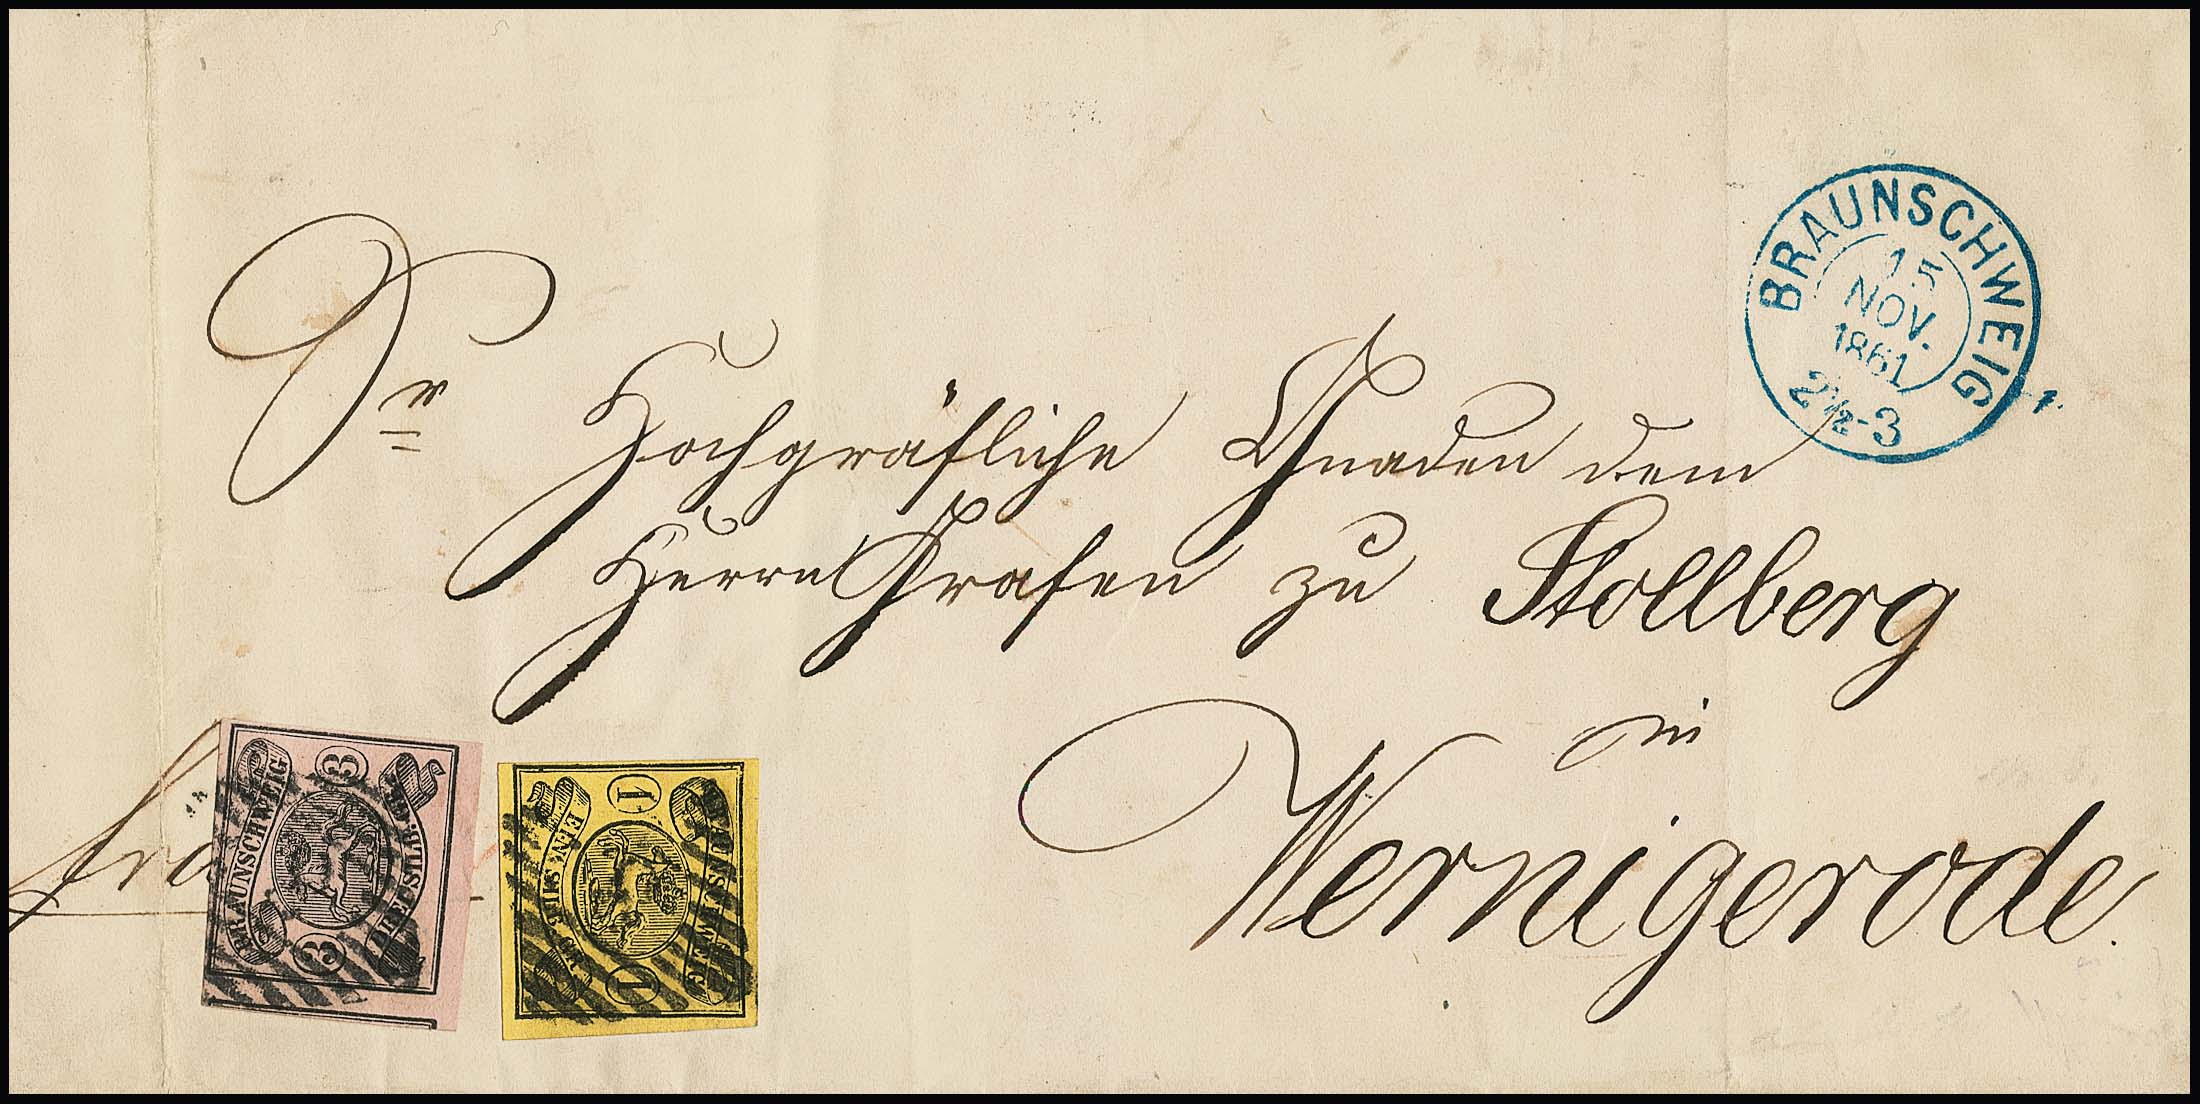 BRAUNSCHWEIG
15
NOV.
1861
2½-3
Sr Hochgräfliche Gnaden dem
Herrn Grafen zu Stollberg
in
Wernigerode.
fra
3
BRAUNSCHWEIG
DREI SILB. GR.
3
1
BRAUNSCHWEIG
EIN SILB. GR.
1